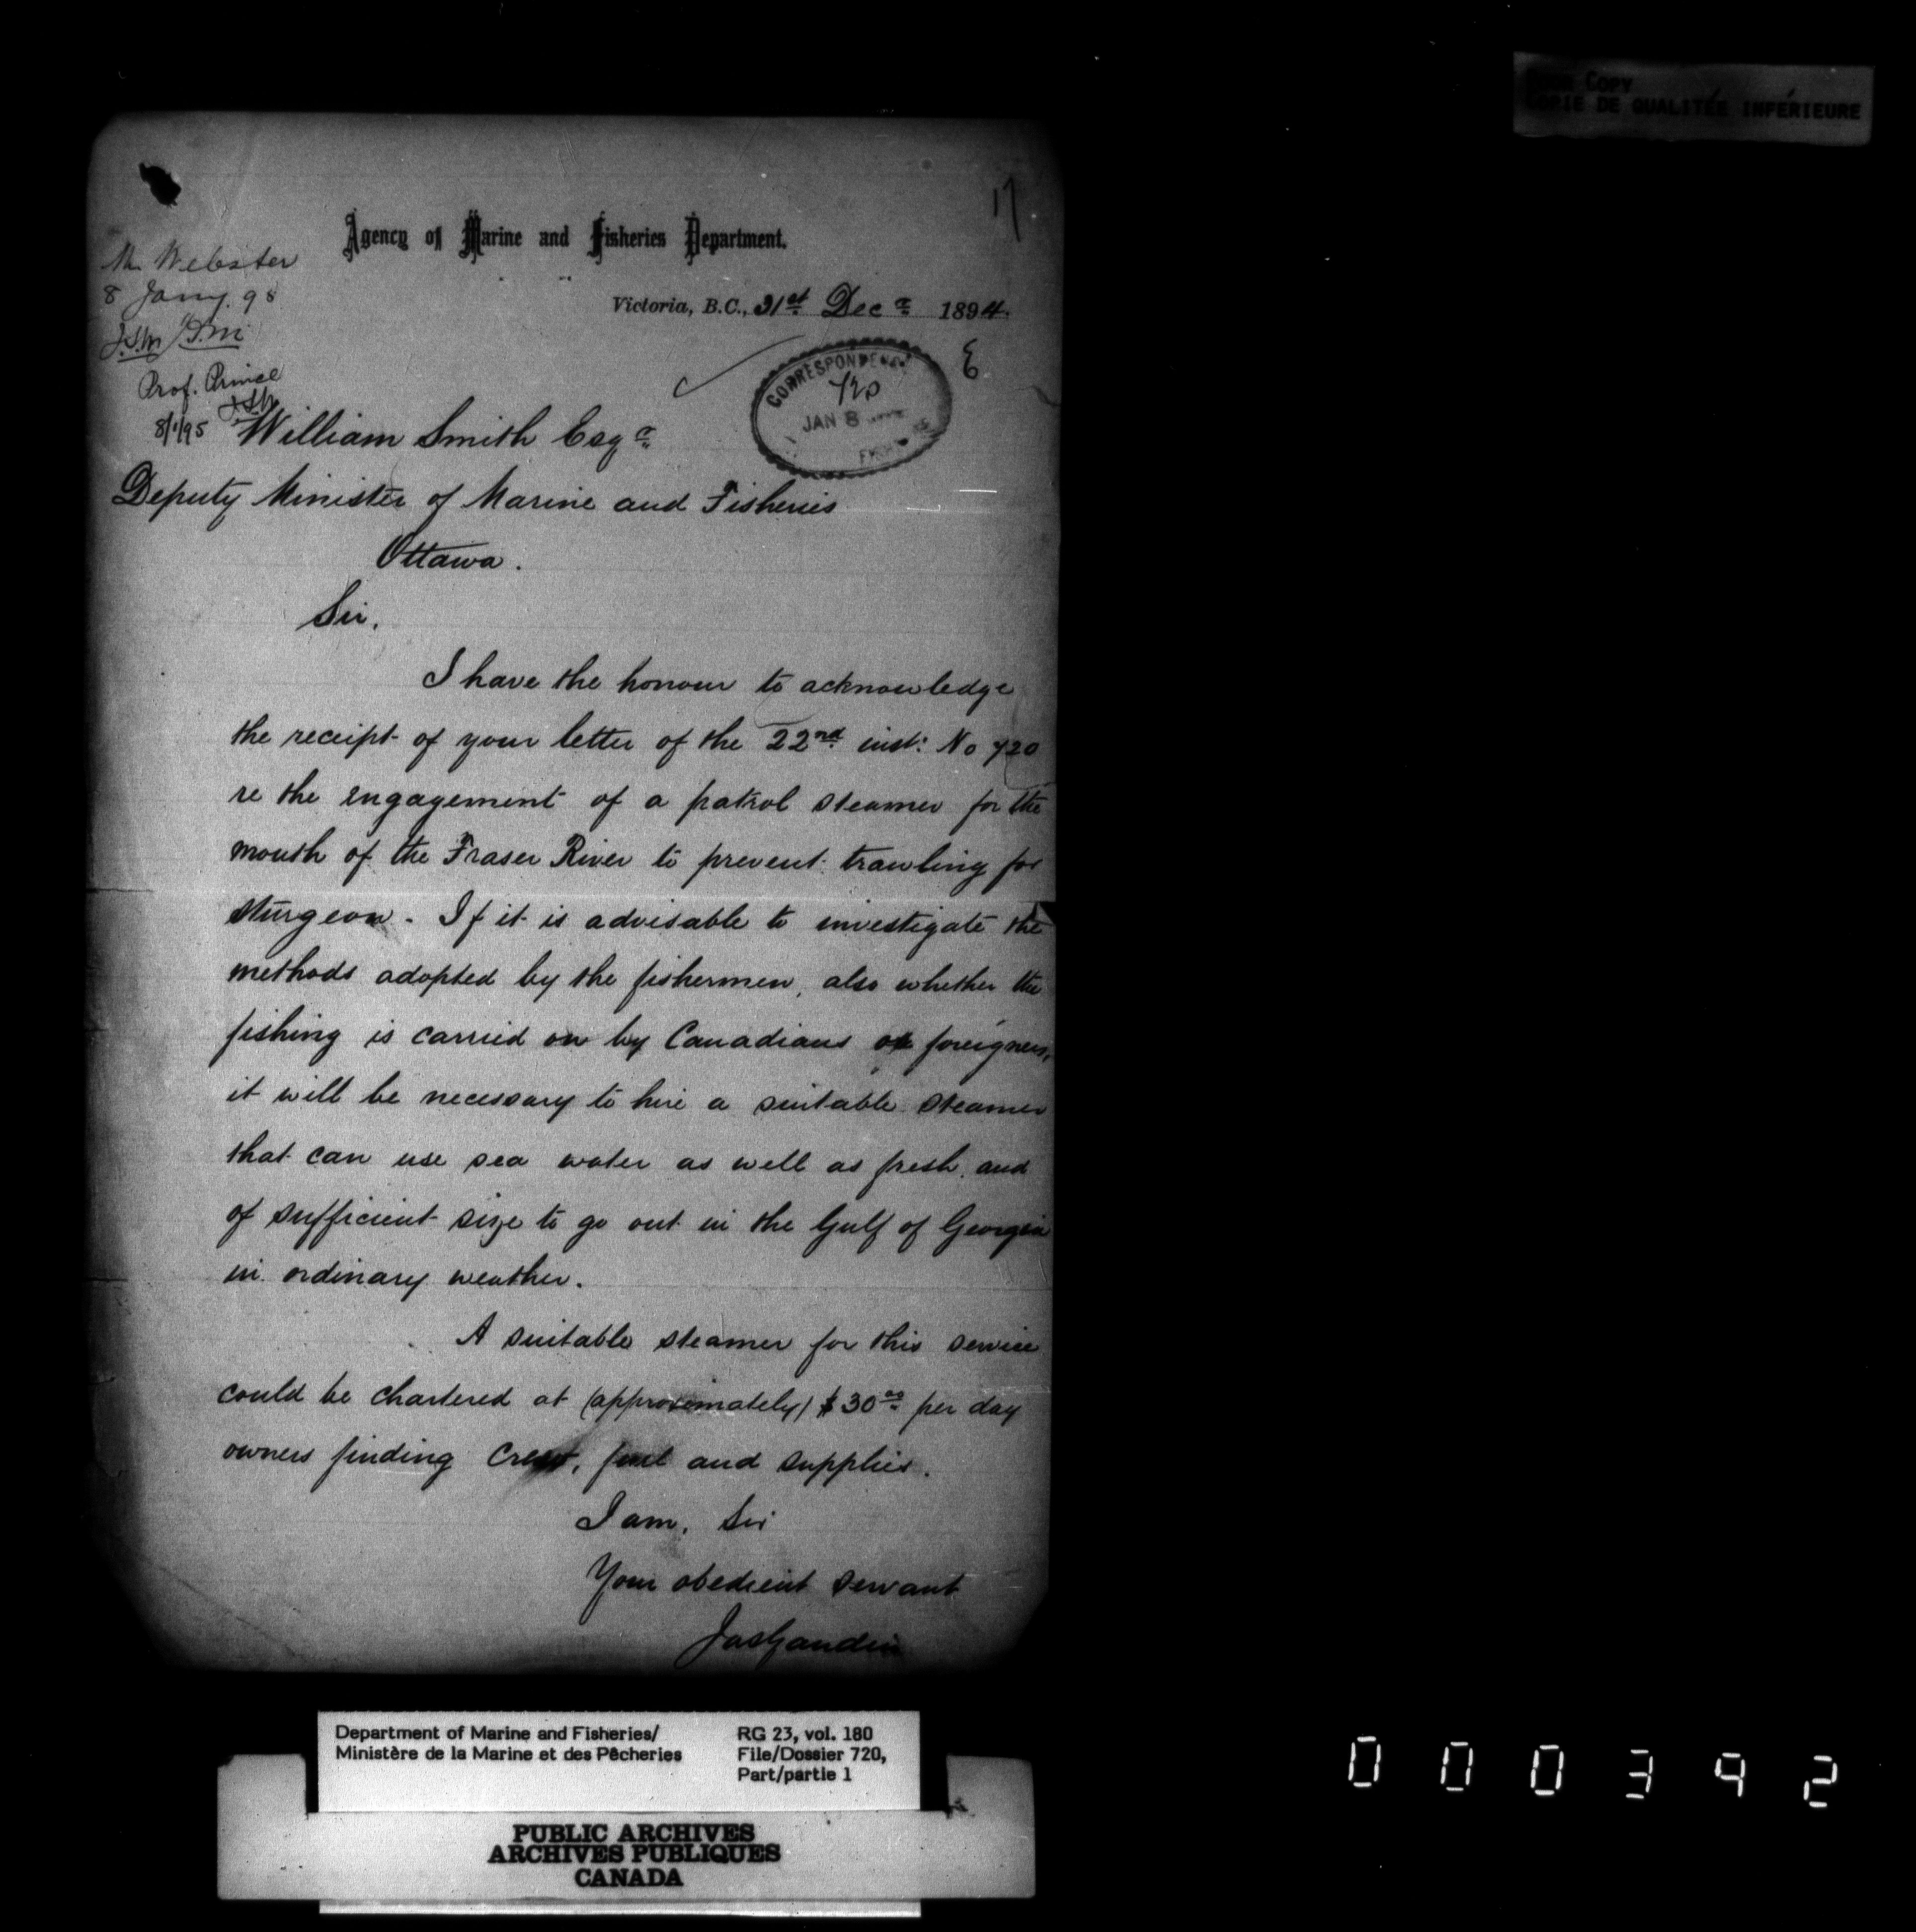 COPY
COPIE DE QUALITÉE INFÉRIEURE
17
Agency of Marine and Fisheries Department.
Mr Webster
8 Jany. 98
Victoria, B.C., 31st Decr 1894.
Prof. Prince
8/1/95
CORRESPONDENCE
720
JAN 8
William Smith Esqr
Deputy Minister of Marine and Fisheries
Ottawa.
Sir,
I have the honour to acknowledge
the receipt of your letter of the 22nd inst: No 720
re the engagement of a patrol steamer for the
mouth of the Fraser River to prevent trawling for
sturgeon. If it is advisable to investigate the
methods adopted by the fishermen, also whether the
fishing is carried on by Canadians or foreigners,
it will be necessary to hire a suitable steamer
that can use sea water as well as fresh, and
of sufficient size to go out in the Gulf of Georgia
in ordinary weather.
A suitable steamer for this service
could be chartered at (approximately) $30.00 per day
owners finding Crew, fuel and supplies.
I am, Sir
Your obedient servant
Jas Gaudin
Department of Marine and Fisheries/
Ministère de la Marine et des Pêcheries
RG 23, vol. 180
File/Dossier 720,
Part/partie 1
PUBLIC ARCHIVES
ARCHIVES PUBLIQUES
CANADA
000392